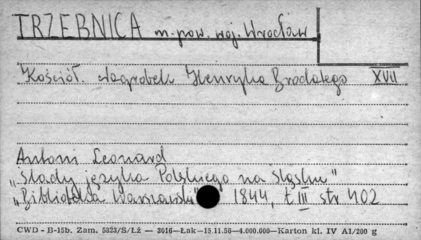 TRZEBNICA m. pow. woj. Wrocław
Kościół. Nagrobek Henryka Brodatego XVII
Antoni Leonard
"Ślady języka Polskiego na Śląsku"
"Biblioteka Warszawska" 1844, t III str 402
CWD - B-15b. Zam. 5823/S/Łż — 3616—Łak—19.11.56—4.000.000—Karton kl. IV A1/200 g